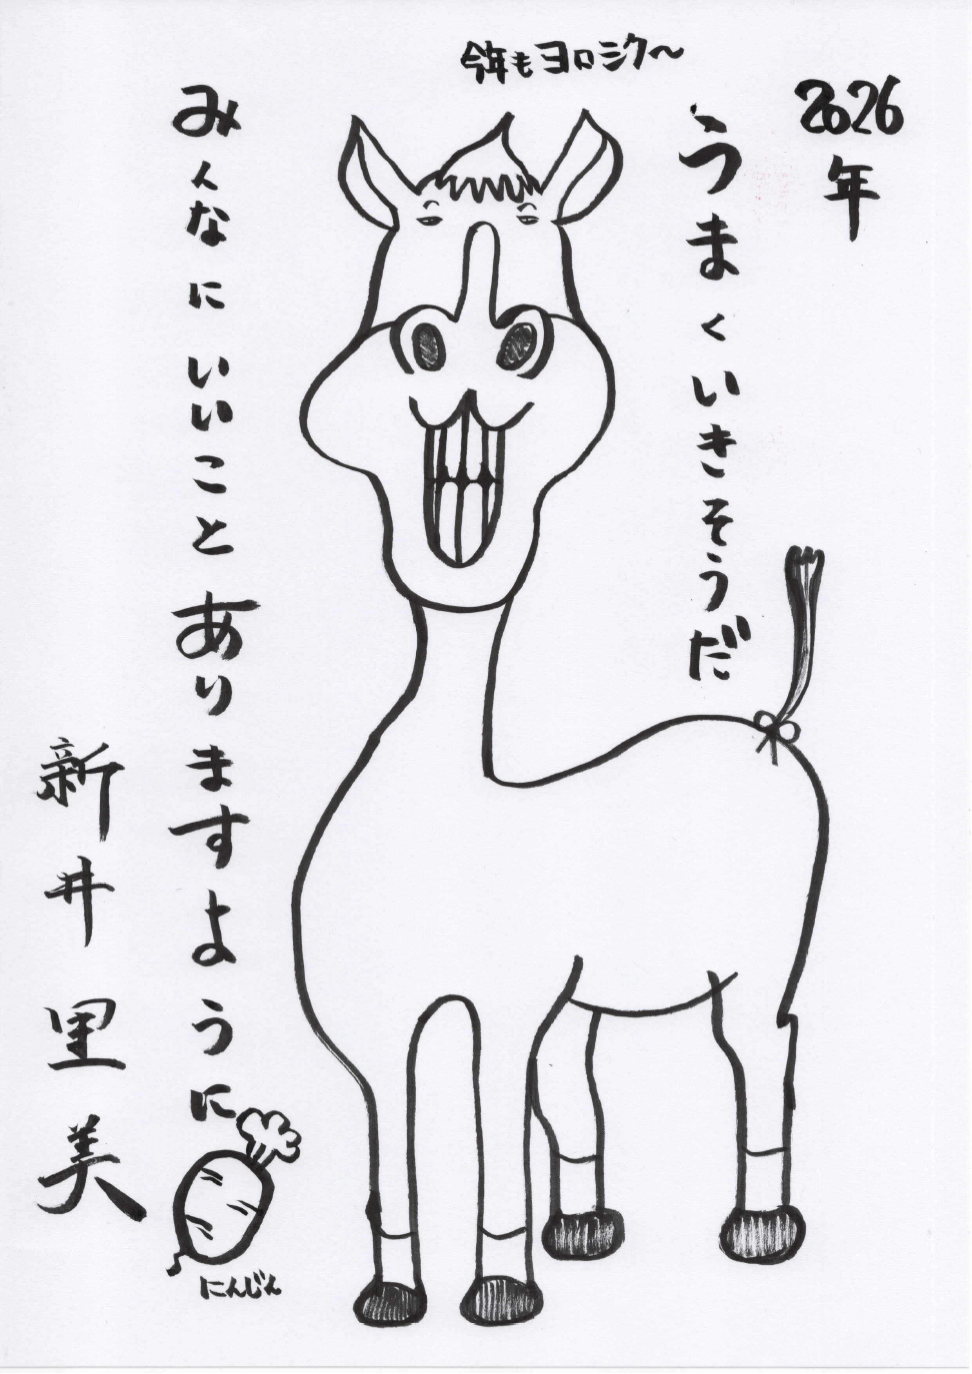 今年もヨロシク〜
2026年
うまくいきそうだ
みんなにいいことありますように
新井里美
にんじん